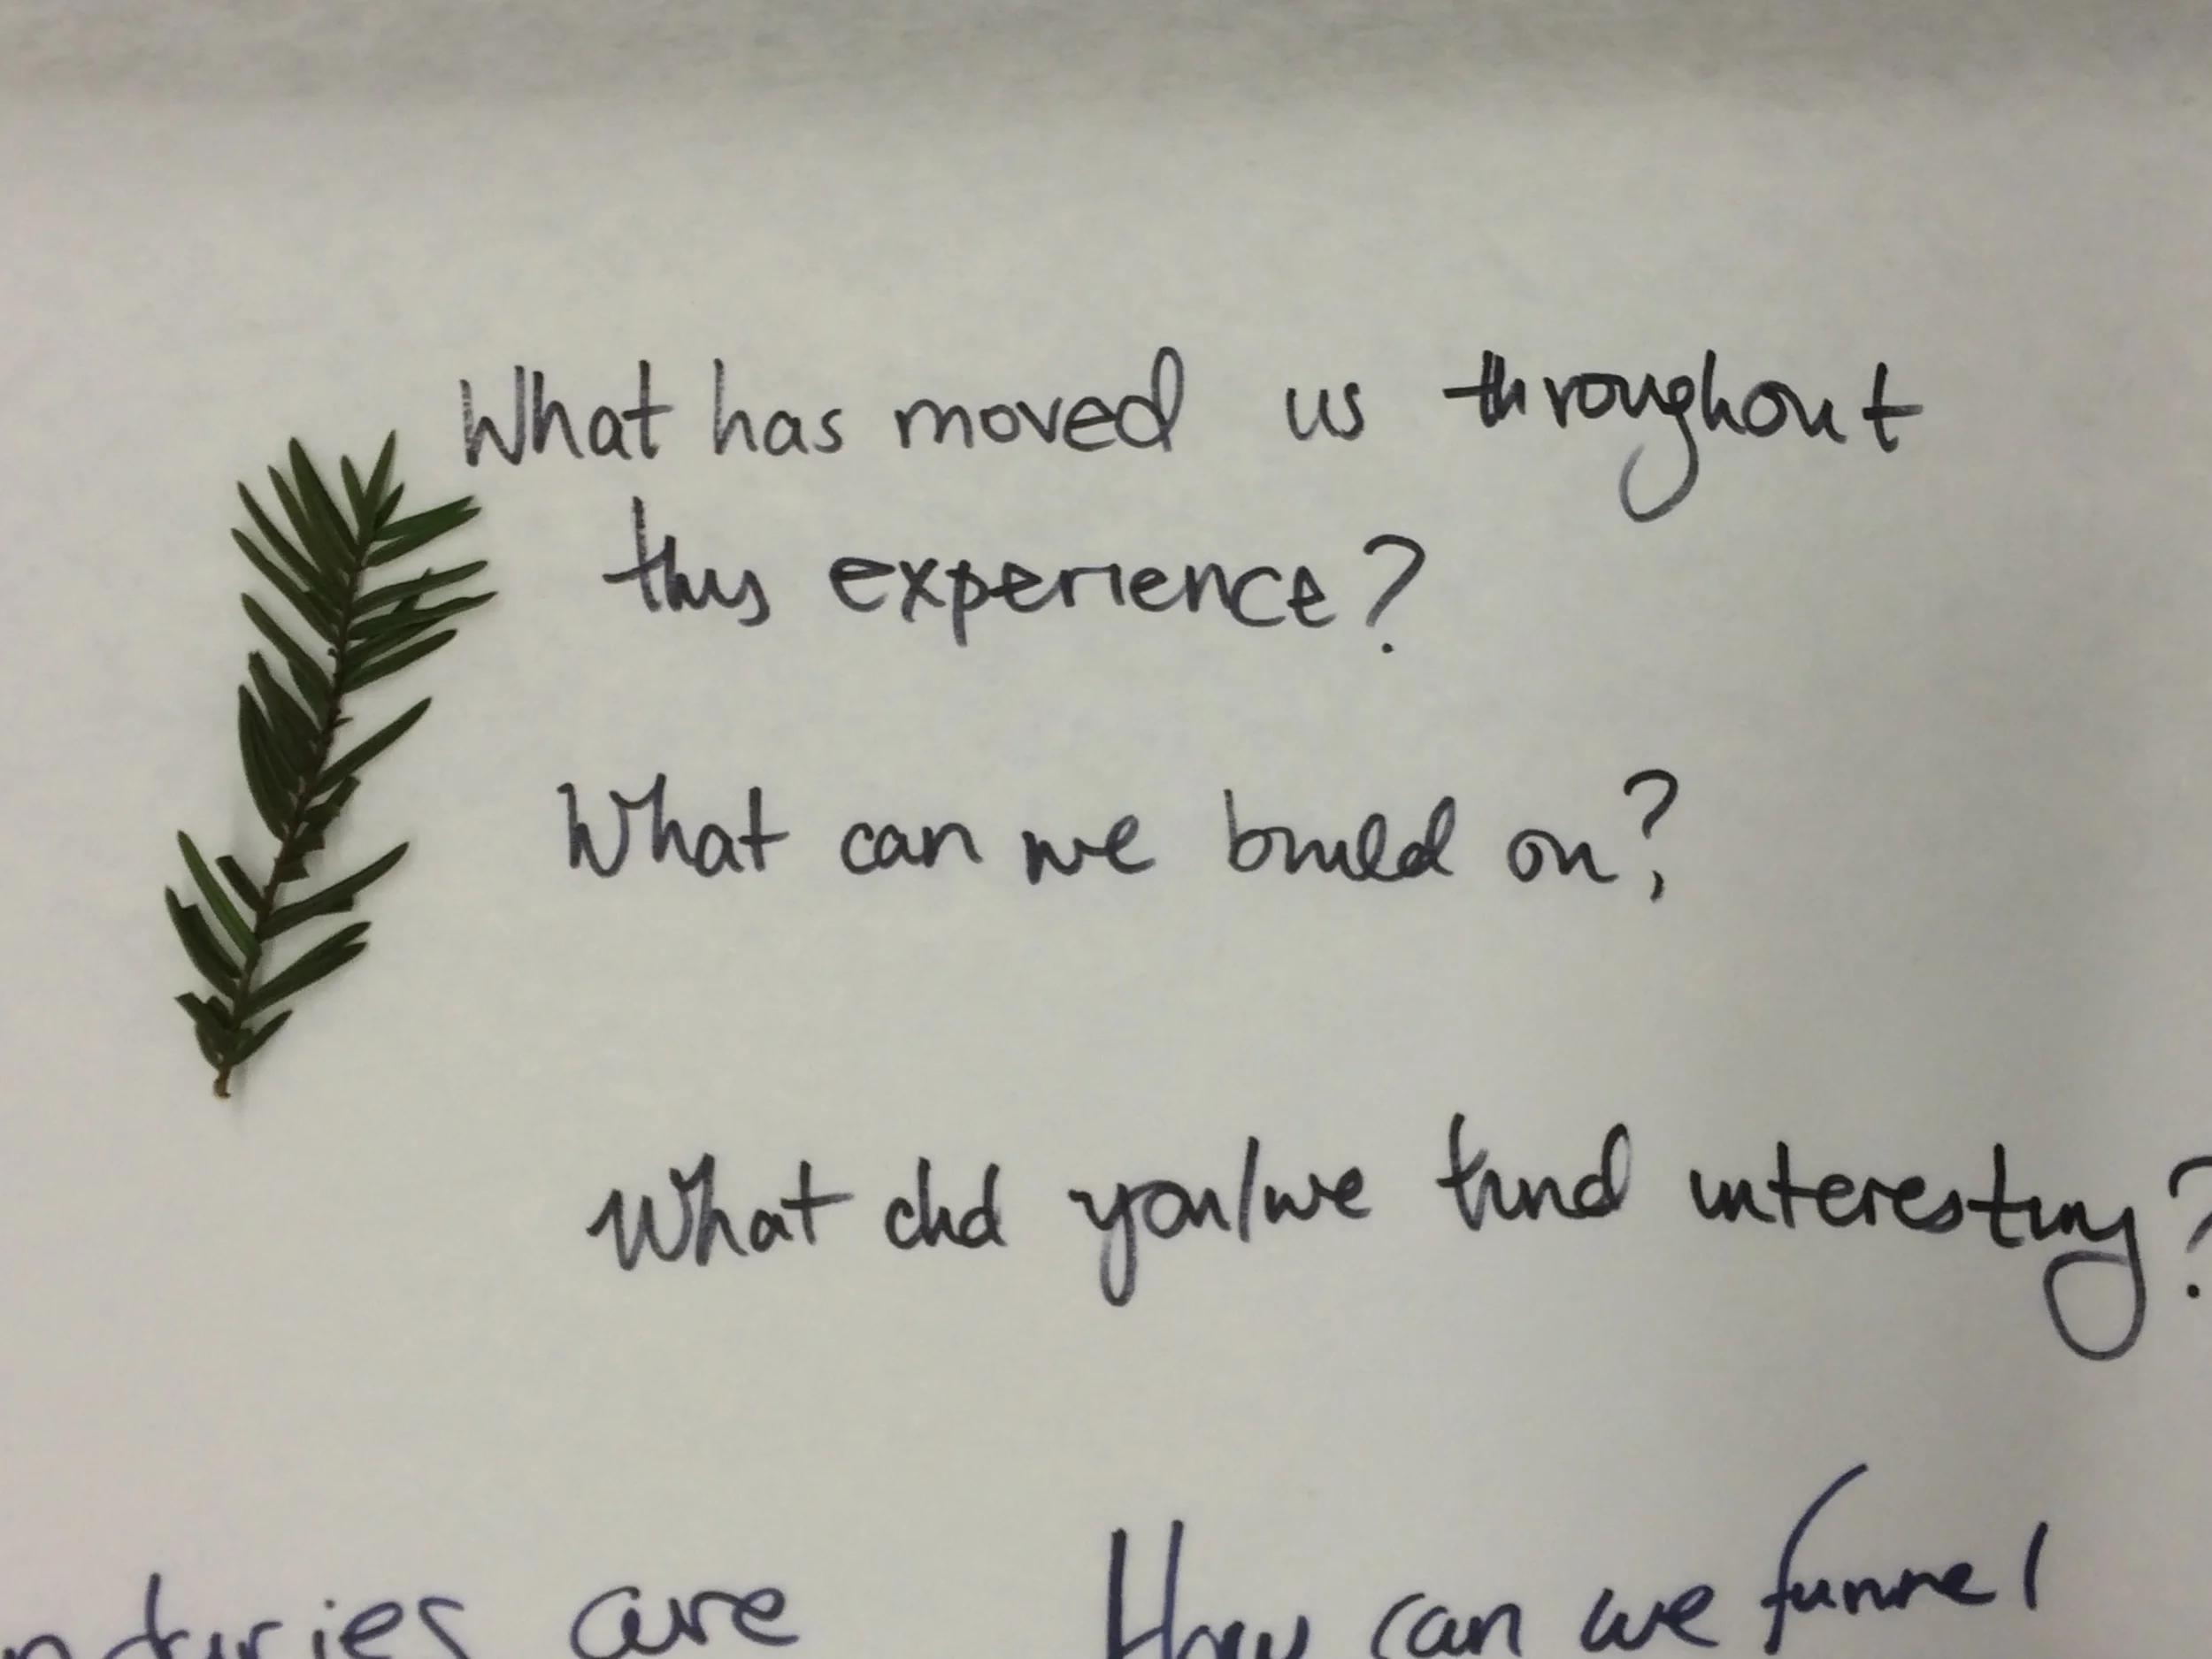 What has moved us throughout
this experience?
What can we build on?
What did you/we find interesting?
are
How can we funnel